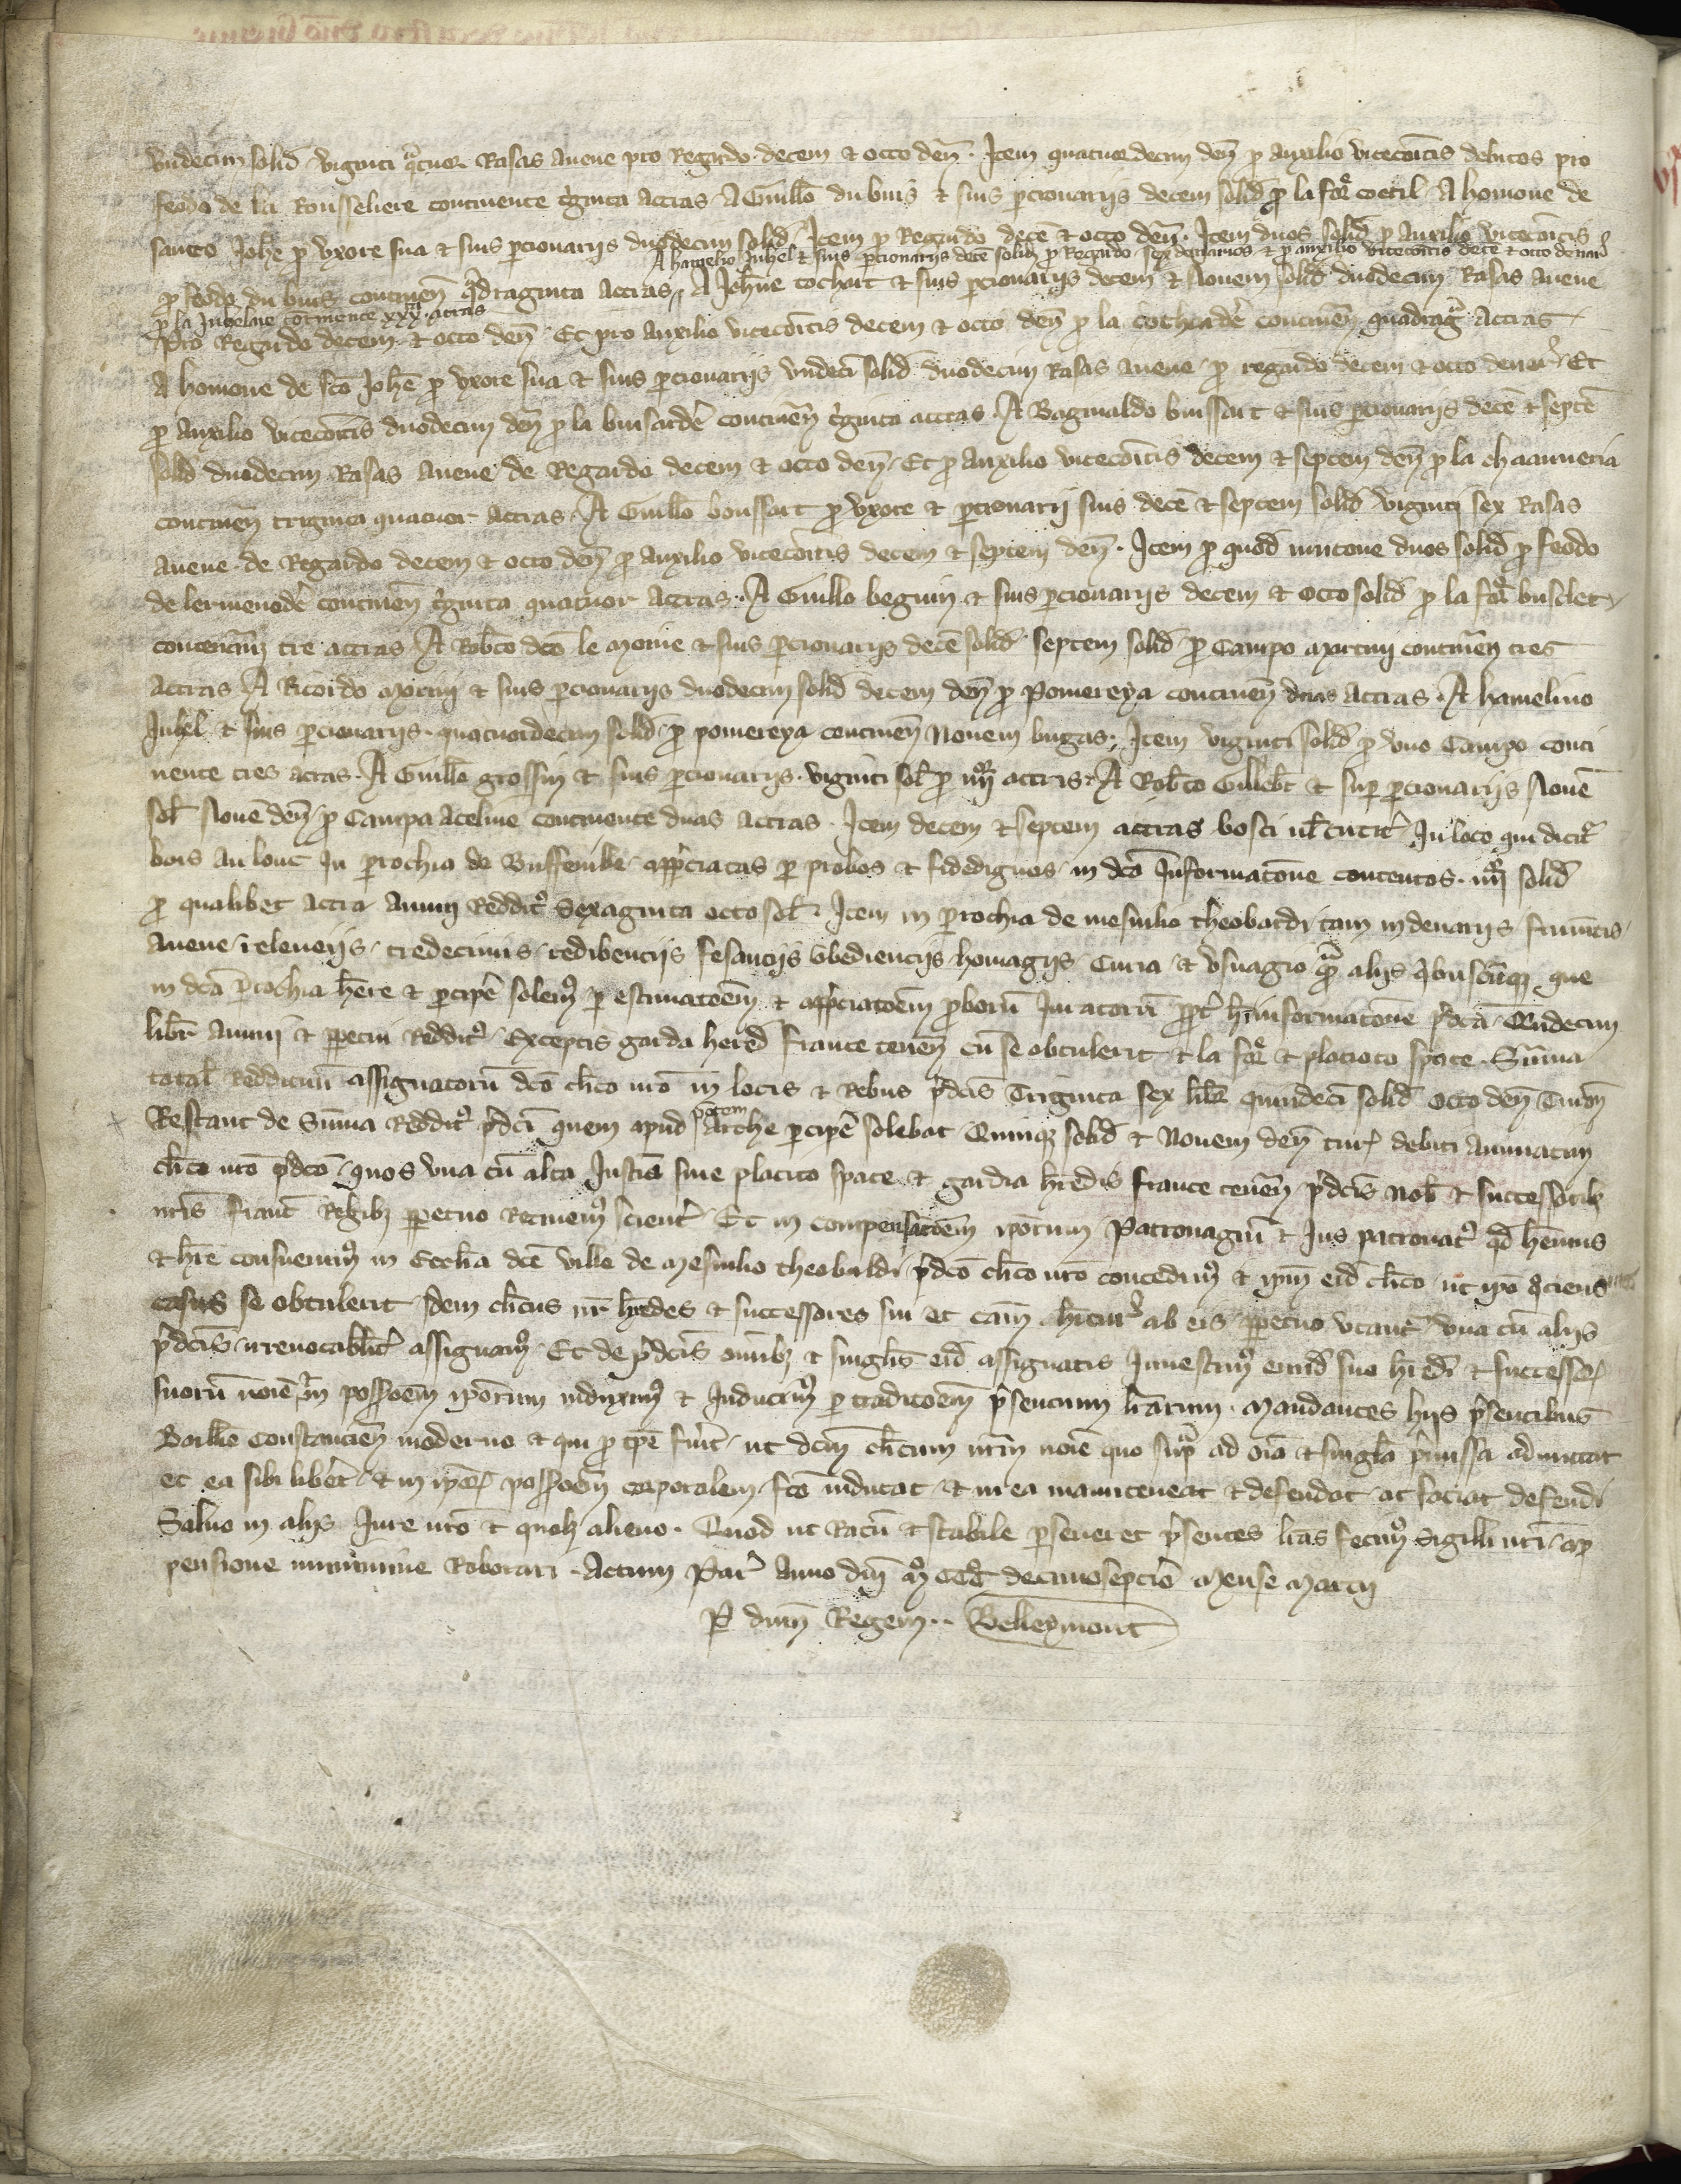 vndecim solid viginti qatuor Rasas auene pro Regardo decem et octo den. Item quatuordecim den p auxilio vicecoitis debitos pro
feodo de la Rousseliere continente tginta acras. A Guillo du buis et suis pcionariis decem solid p la for coetil. A homone de
sancto Johe p vxore sua et suis pcionariis duodecim solid. Item p Regardo dece et octo den. Item duos solid p auxilio vicecoitis
A hamelino Juhel et suis pcionariis dece solid p Regardo sex denarios et p auxilio vicecoitis dece et octo denar
p feodo du buis continen qdraginta acras. A Johne cochart et suis pcionariis decem et nouem solid duodecim Rasas auene
p la Juheline continente xxx acras
pro Regardo decem et octo den. Et pro auxilio vicecoitis decem et octo den p la cocharde continen quadrag acras
A homone de sco Johe p vxore sua et suis pcionariis vndeci solid duodecim Rasas auene p regardo decem et octo denar. Et
p auxilio vicecoitis duodecim den p la buisarde continen tginta acras. A Raginaldo buissart et suis pcionariis dece et septe
solid duodecim Rasas auene de Regardo decem et octo den. Et p auxilio vicecoitis decem et septem den p la chaanneria
continen triginta quatuor acras. A Guillo boussart p vxore et pcionarii suis dece et septem solid viginti sex Rasas
auene de Regardo decem et octo den p auxilio vicecoitis decem et septem den. Item p quod duos solid p feodo
de lermenode continen tginta quatuor acras. A Guillo beguin et suis pcionariis decem et octo solid p la for busclet
tre acras A Robto dco le moine et suis pcionariis dece solid septem solid p Campo martini continen tres
acras A Ricardo martin et suis pcionariis duodecim solid decem den p Pomereya continen duas acras. A hamelino
Juhel et suis pcionariis quatuordecim solid p pomereya continen Nouem uirgas. Item viginti solid p vno Campo conti
nente tres acras. A Guillo grossin et suis pcionariis viginti sol p iiiior acris. A Robto Gillebt et sup pcionariis Noue
sol Noue den p Campa aceline continente duas acras. Item decem et septem acras bosci ul circitr In loco qui dicitr
bois au louc In prochia de appciatas p probos et fidedignos in dca Informatone contentos iiiior solid
p qualibet acra annui Redditus sexaginta octo sol. Item in prochia de mesnilio theobardi tam in denariis frumtis
auene releueiis tredecimis redibenciis fesanciis obedienciis homagiis Curia et vsuagio qm aliis qbuscuqz que
in dca prochia here et pcipe solemus p estimatoem et appciatoem proborum Juratorum ppt h informatone pdca Qndecim
libr annui et ppetui Redditus Exceptis garda hered france tenen cu se obtulerit et la for et placito spate. Suma
total Reddituu assignatoru dco clico nro in locis et Rebus pdcis Triginta sex libr quindeci solid octo den Turon
Restant de Suma Redditus pdci quem apud potem Arche pcipe solebat Quinqz solid et Nouem den tur debiti annuatim
clico nro pdco quos vna cu alta Justic siue placito spate et gardia hredis france tenen pdcis nob et successoribz
nris Franc Regibz ppetuo Retinemus scientr. Et in compensatoem ipotum Patronagiu et Jus patronatus qd hemus
et hre consueuimus in Ecclia dce ville de mesnilio theobaldi pdco clico nro concedimus et ipm eid clico ut ipo qciens
casus se obtulerit idem clicus nr hredes et successores sui et cam hituri ab eis ppetuo vtantr vna cu aliis
pdcis irreuocabilitr assignamus. Et de pdcis omibz et singlis eid assignatis Inuestimus eiusd suo hredi et successor
suoru noie in possoem ipotum induximus et Inducimus p traditoem psentium lrarum. Mandantes hiis psentibus
Bailliuo Constancien moderno et qui p tpe fuit ut dcm clicum nrm noie quo sup ad oia et singla pmissa admittat
et ea sibi libet et in ipor possoem corporalem sco inducat et in ea manuteneat et defendat ac faciat defendi
Saluo in aliis Jure nro et quolz alieno. Quod ut Ratu et stabile perseueret psentes lras fecimus sigilli nri ap
pensione munimine Roborari. Actum Par Anno dni mo CCCo decimoseptio mense marcii
P dnm Regem .. Belleymont